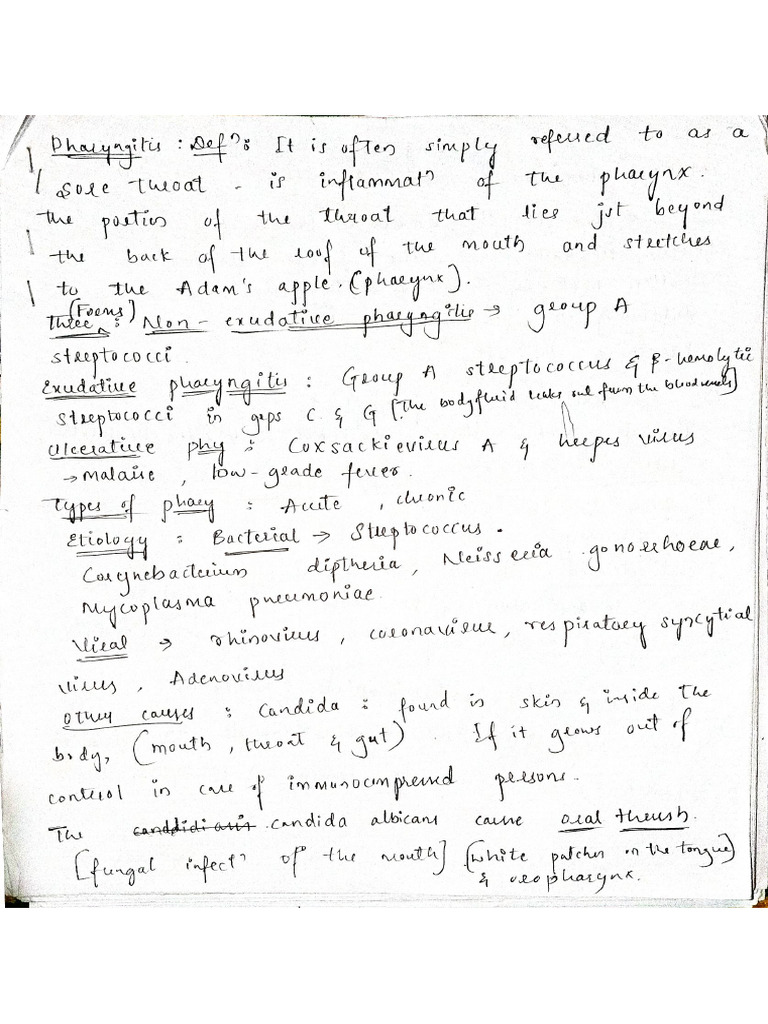 Pharyngitis : Defn : It is often simply referred to as a
sore throat - is inflammatn of the pharynx.
the portion of the throat that lies jst beyond
the back of the roof of the mouth and stretches
to the Adam's apple. (pharynx).
(Forms)
Three : Non-exudative pharyngitis → group A
streptococci.
Exudative pharyngitis : Group A streptococcus & β-hemolytic
streptococci in gps C & G [The bodyfluid leaks out from the blood vessels]
Ulcerative phy : Coxsackievirus A & herpes virus
→ malaise, low-grade fever.
Types of phary : Acute, chronic
Etiology : Bacterial → Streptococcus.
Corynebacterium diptheria, Neisseria gonorrhoeae,
Mycoplasma pneumoniae.
Viral → rhinovirus, coronavirus, respiratory syncytial
virus, Adenovirus
Other causes : Candida : found in skin & inside the
body, (mouth, throat & gut). If it grows out of
control in case of immunocompressed persons.
The canddidiasis candida albicans cause oral thrush.
[fungal infectn of the mouth] (white patches on the tongue)
& oropharynx.